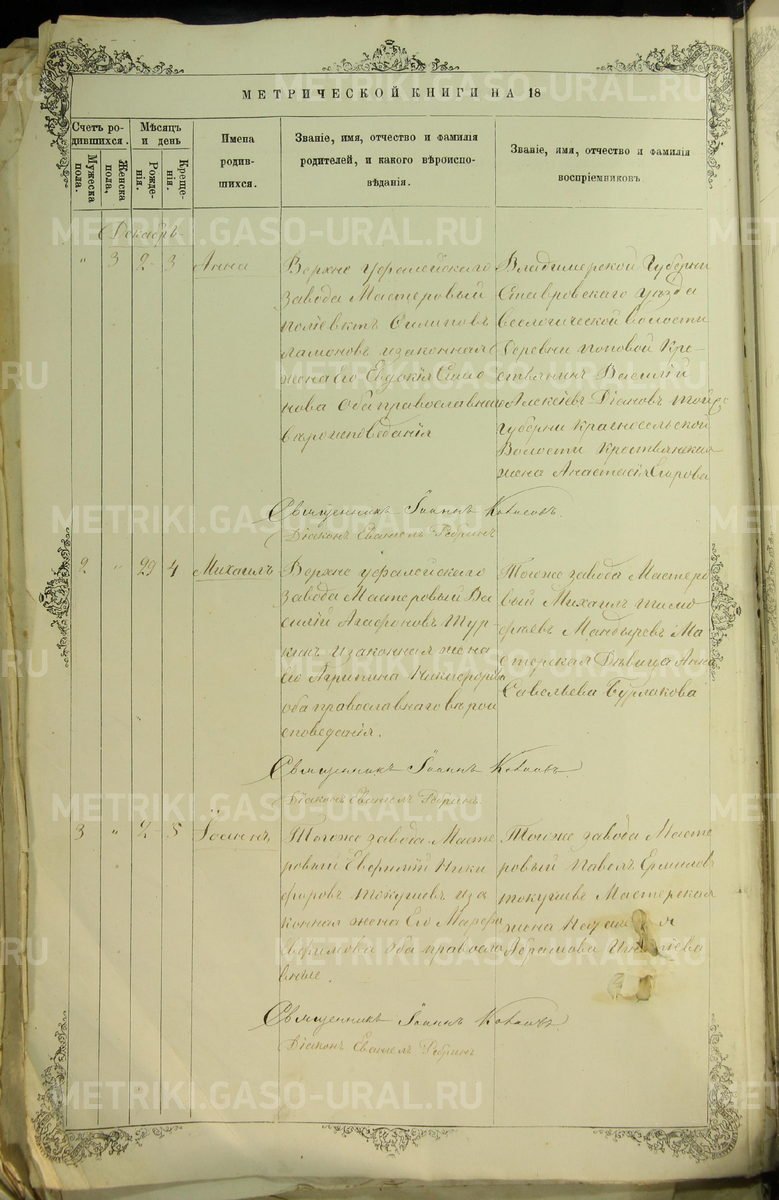 МЕТРИЧЕСКОЙ КНИГИ НА 18
Счетъ родившихся.
Мужеска пола.
Женска пола,
Мѣсяцъ и день
Рожденія.
Крещенія.
Имена родившихся.
Званіе, имя, отчество и фамилія
родителей, и какого вѣроиспо-
вѣданія.
Званіе, имя, отчество и фамилія
воспріемниковъ.
Декабрь
" 3 2 3 Анна
Верхне Уфалейскаго
завода Мастеровый
Полієвктъ Филиповъ
изаконная
жена Его Евдокія
нова Оба православнаго
вѣроисповеданія
Владимерской Губерніи
уезда
Волости
деревни Поповой Кре-
стьянинъ Василій
Алексіевъ той же
Губерніи Красносельской
Волости Крестьянская
жена Анастасія Егорова
Священникъ Іоаннъ
Діаконъ
2 " 29 4 Михаилъ
Верхне Уфалейскаго
завода Мастеровый Ва
силій Агафоновъ Тур
кинъ изаконная жена
его Агрипина Никифорова
оба православнаго вѣрои
споведанія.
Тогоже завода Мастеро
вый Михаилъ Тимо
феевъ Ма
стерская Дѣвица Анна
Савельева Бурлакова
Священникъ Іоаннъ
Діаконъ
3 " 2 5 Іоаннъ
Тогоже завода Масте
ровый Евфимій Ники
форовъ Токушевъ иза
конная жена Его Марфа
Ефимова Оба правосла
вные.
Тогоже завода Масте
ровый Павелъ Ермиловъ
Токушевъ Мастерская
жена
Абрамова
Священникъ Іоаннъ
Діаконъ
METRIKI.GASO-URAL.RU